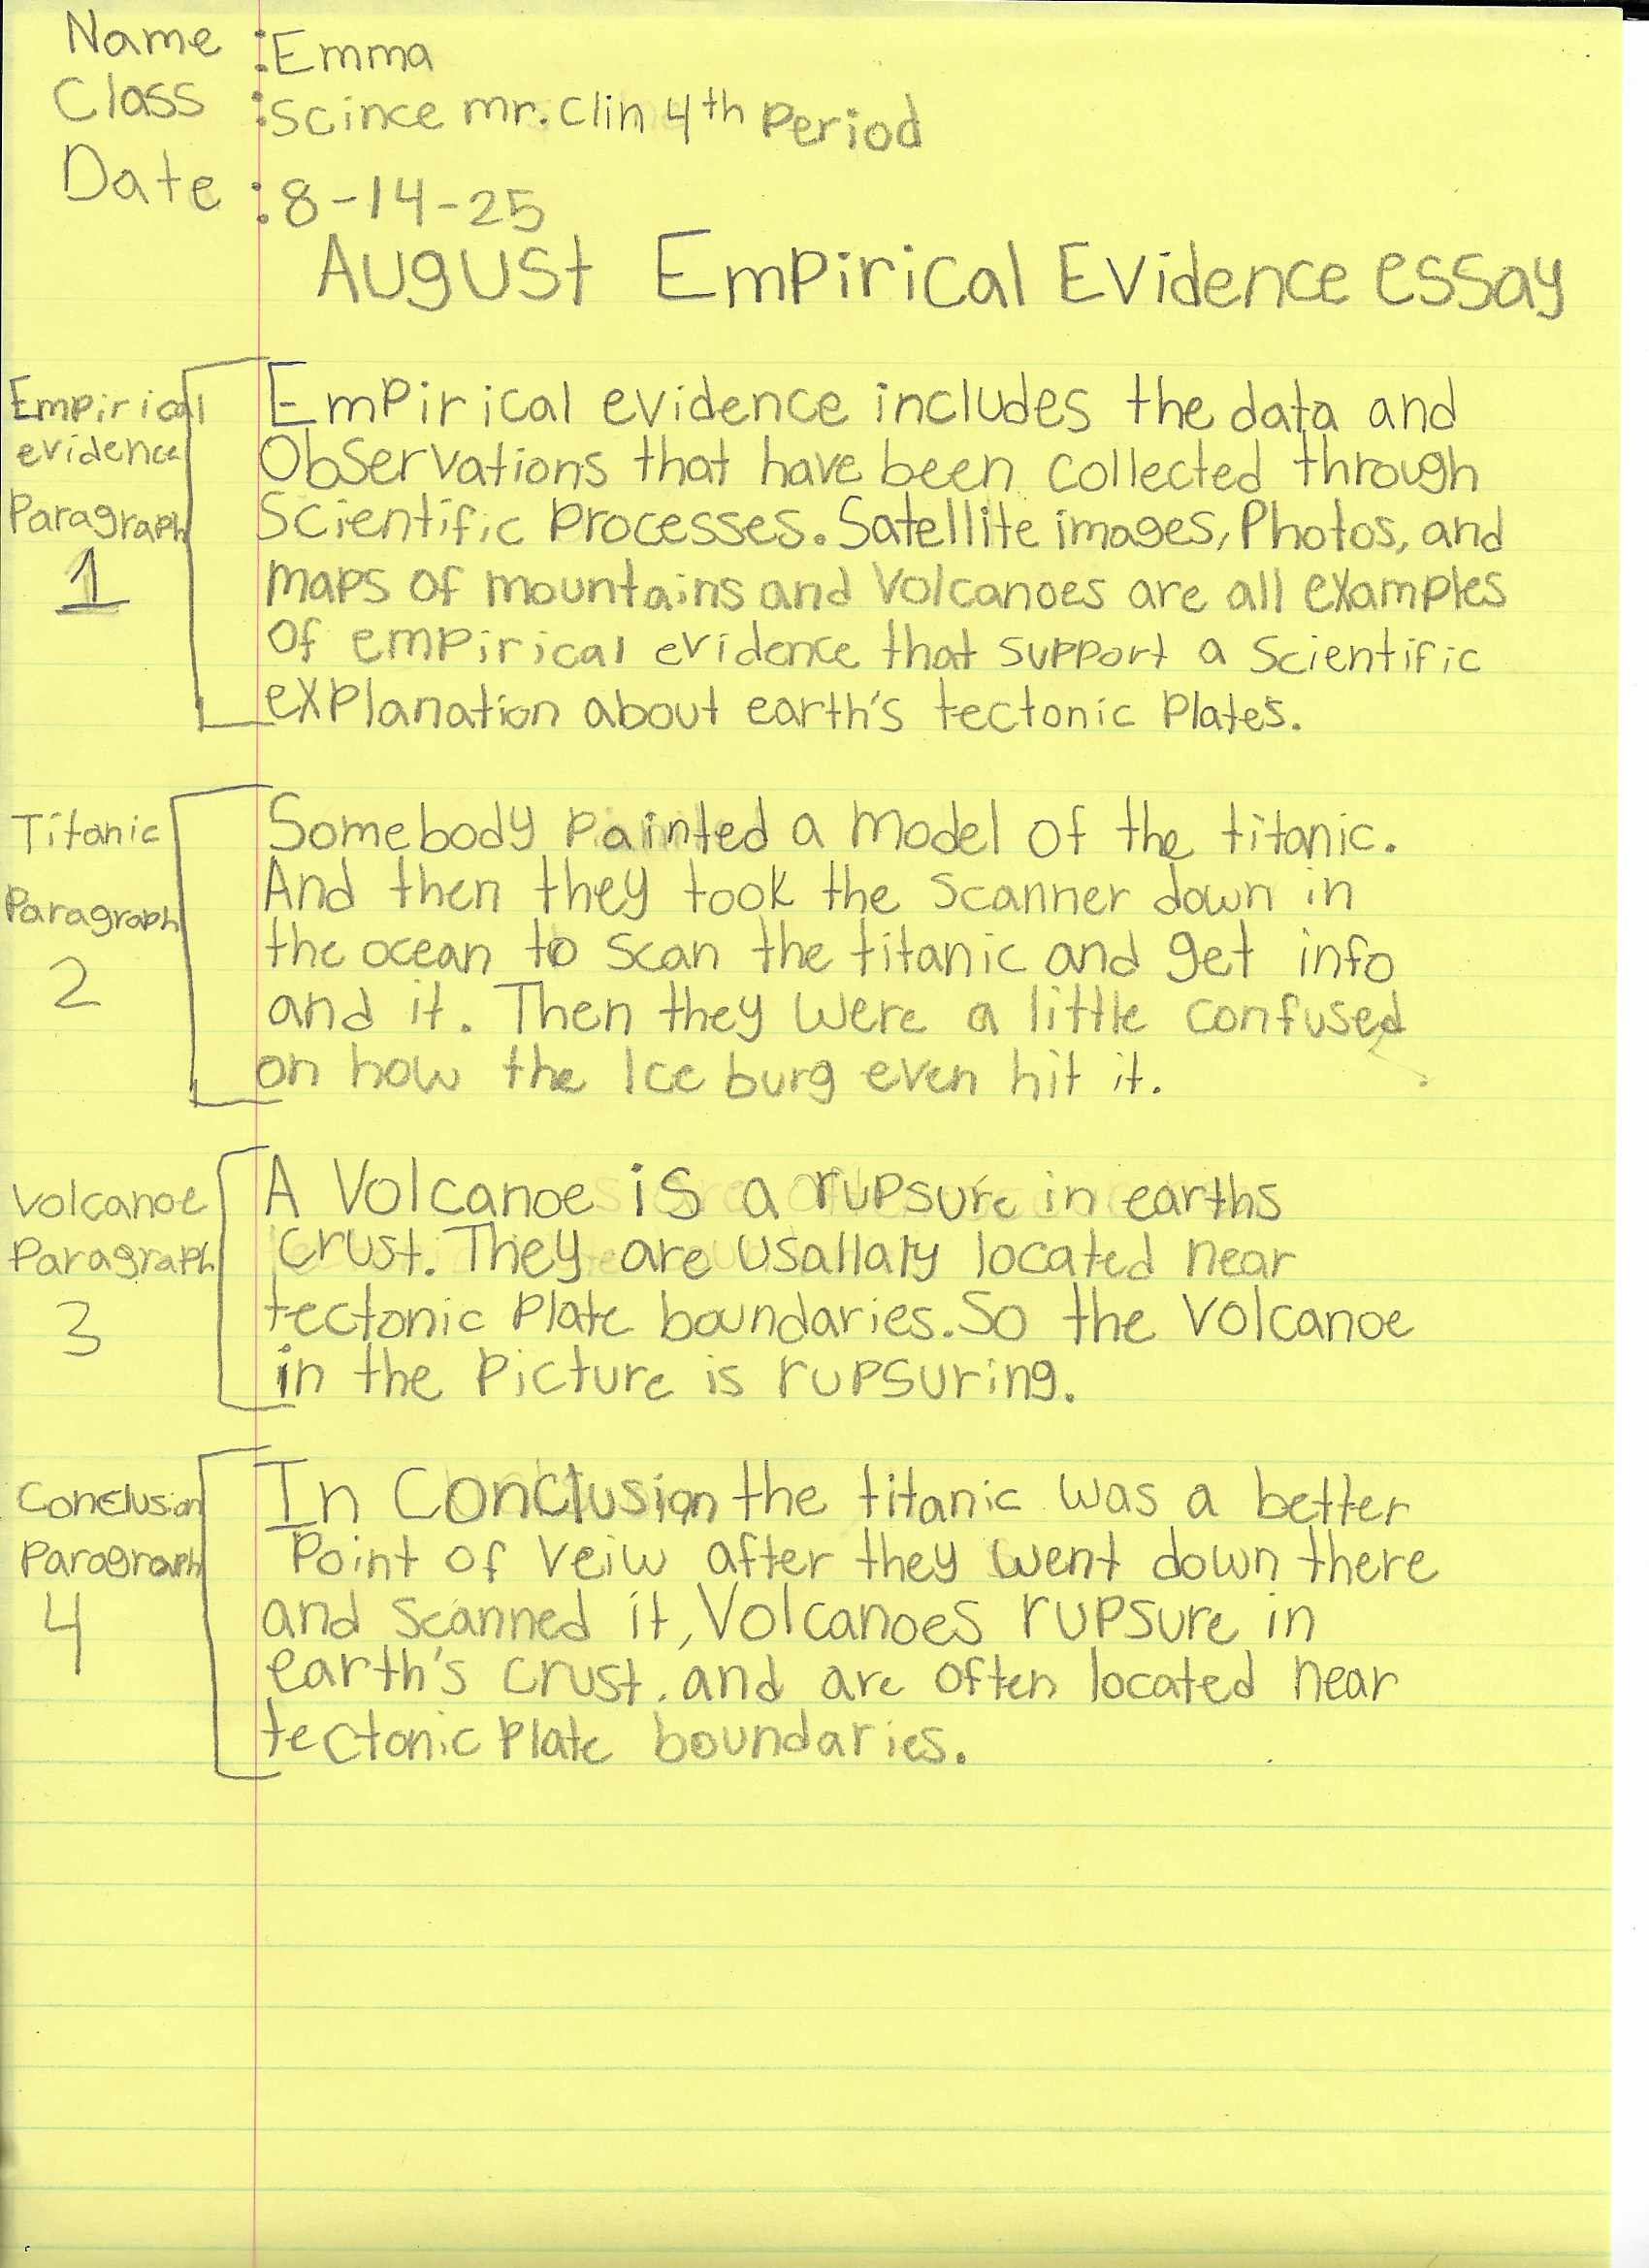 Name : Emma
Class : Scince mr. Clin 4th Period
Date : 8-14-25
August Empirical Evidence essay
Empirical
evidence
Paragraph
1
Empirical evidence includes the data and
Observations that have been collected through
Scientific Processes. Satellite images, Photos, and
maps of mountains and Volcanoes are all examples
of empirical evidence that support a Scientific
explanation about earth's tectonic Plates.
Titanic
Paragraph
2
Somebody painted a model of the titanic.
And then they took the scanner down in
the ocean to scan the titanic and get info
and it. Then they were a little confused
on how the Ice burg even hit it.
Volcanoe
Paragraph
3
A Volcanoe is a rupsure in earths
crust. They are usallaly located near
tectonic Plate boundaries. So the Volcanoe
in the Picture is rupsuring.
Conclusion
Paragraph
4
In Conclusion the titanic was a better
Point of veiw after they went down there
and scanned it, Volcanoes rupsure in
earth's crust. and are often located near
tectonic Plate boundaries.